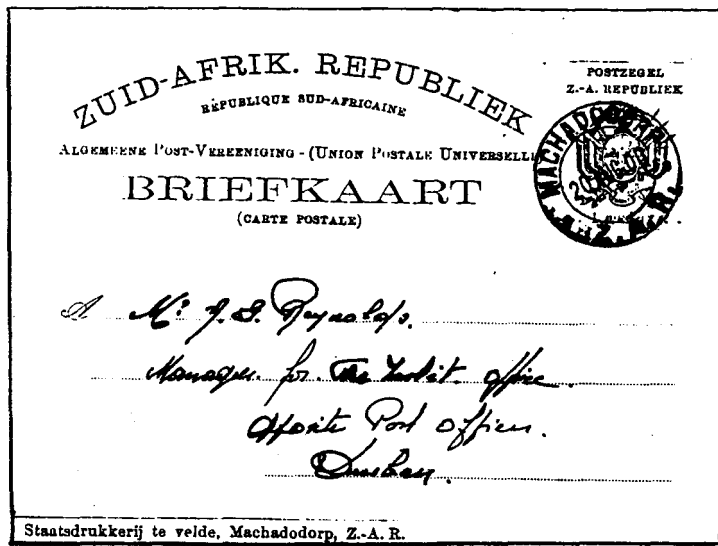 ZUID-AFRIK. REPUBLIEK
RÉPUBLIQUE SUD-AFRICAINE
ALGEMEENE POST-VEREENIGING - (UNION POSTALE UNIVERSELLE
BRIEFKAART
(CARTE POSTALE)
POSTZEGEL
Z.-A. REPUBLIEK
MACHADODORP
Z.A.R.
A Mr. Reynolds.
Manager for The office.
Post Office.
Durban.
Staatsdrukkerij te velde, Machadodorp, Z.-A. R.